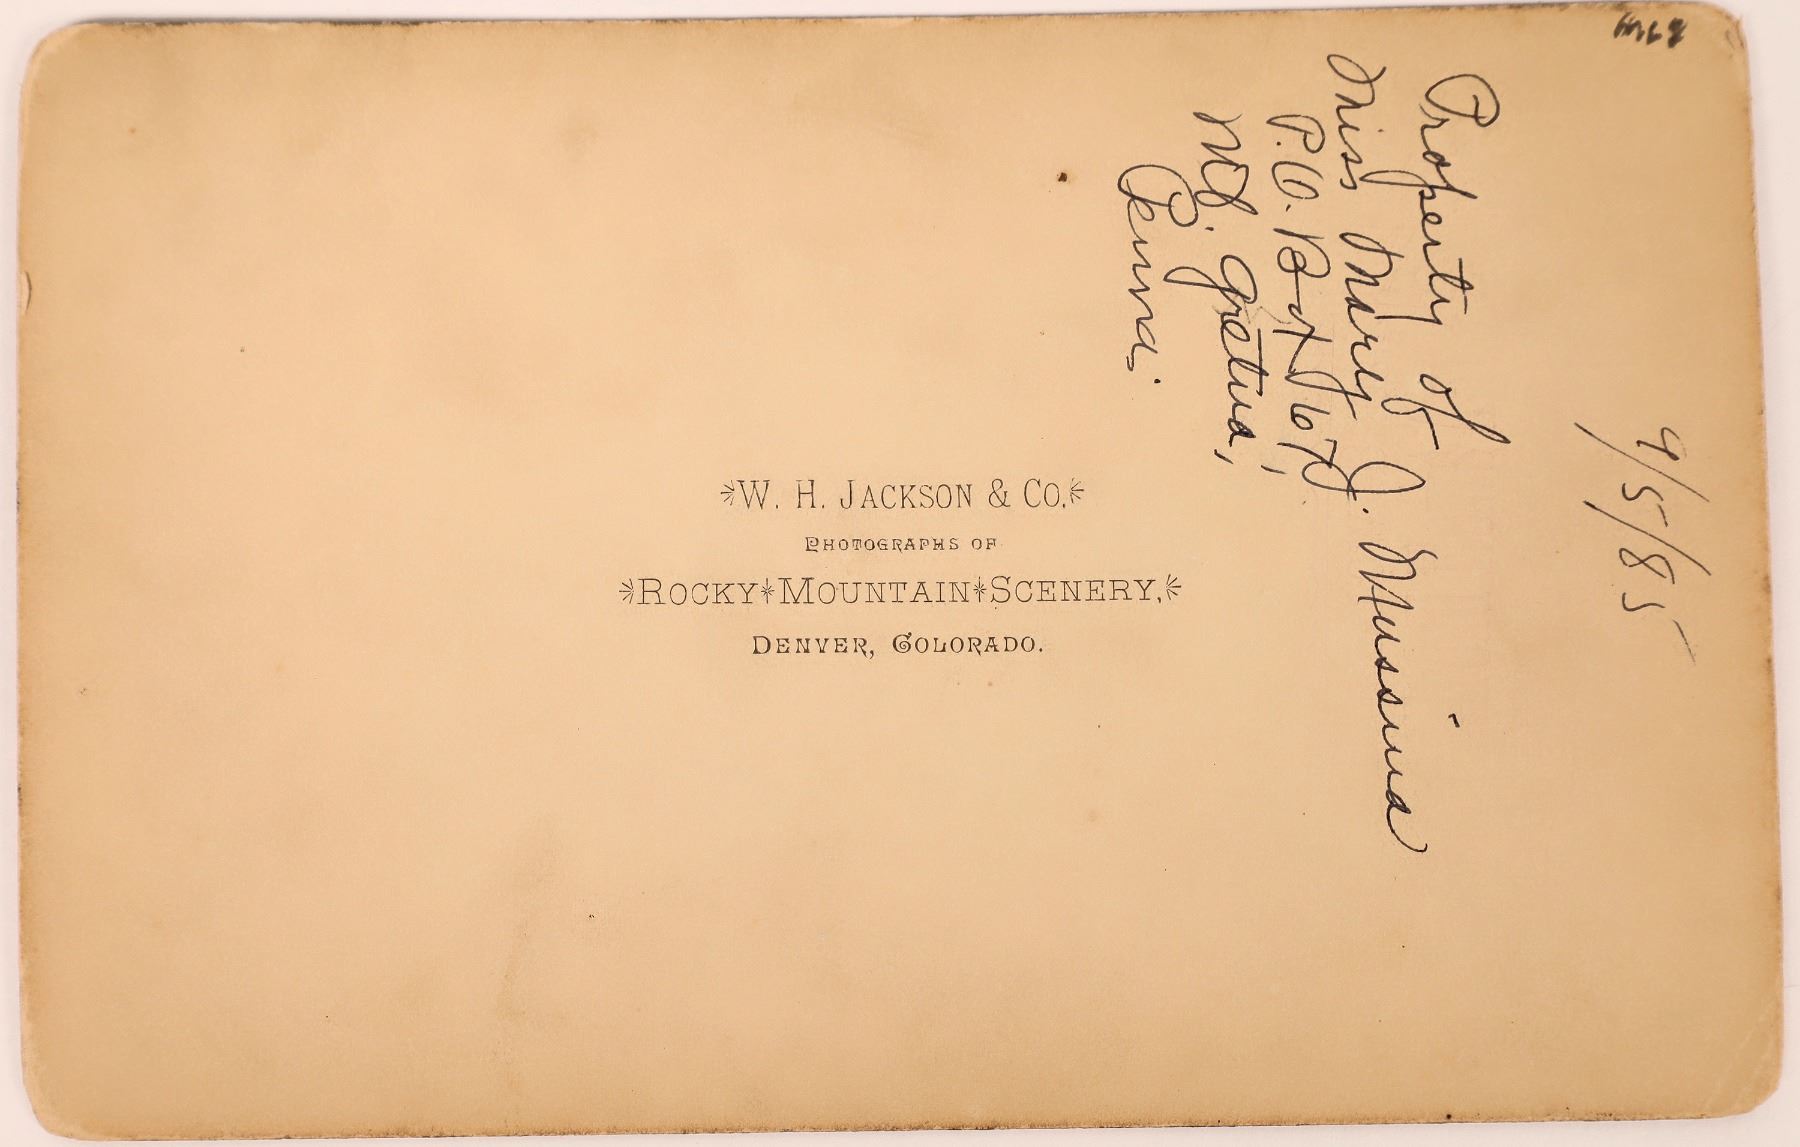 W. H. JACKSON & CO.
PHOTOGRAPHS OF
ROCKY MOUNTAIN SCENERY,
DENVER, COLORADO.
9/5/85
Property of
Miss Mary J. Mussina
P.O. Box
Mt. Gretna,
Penna.